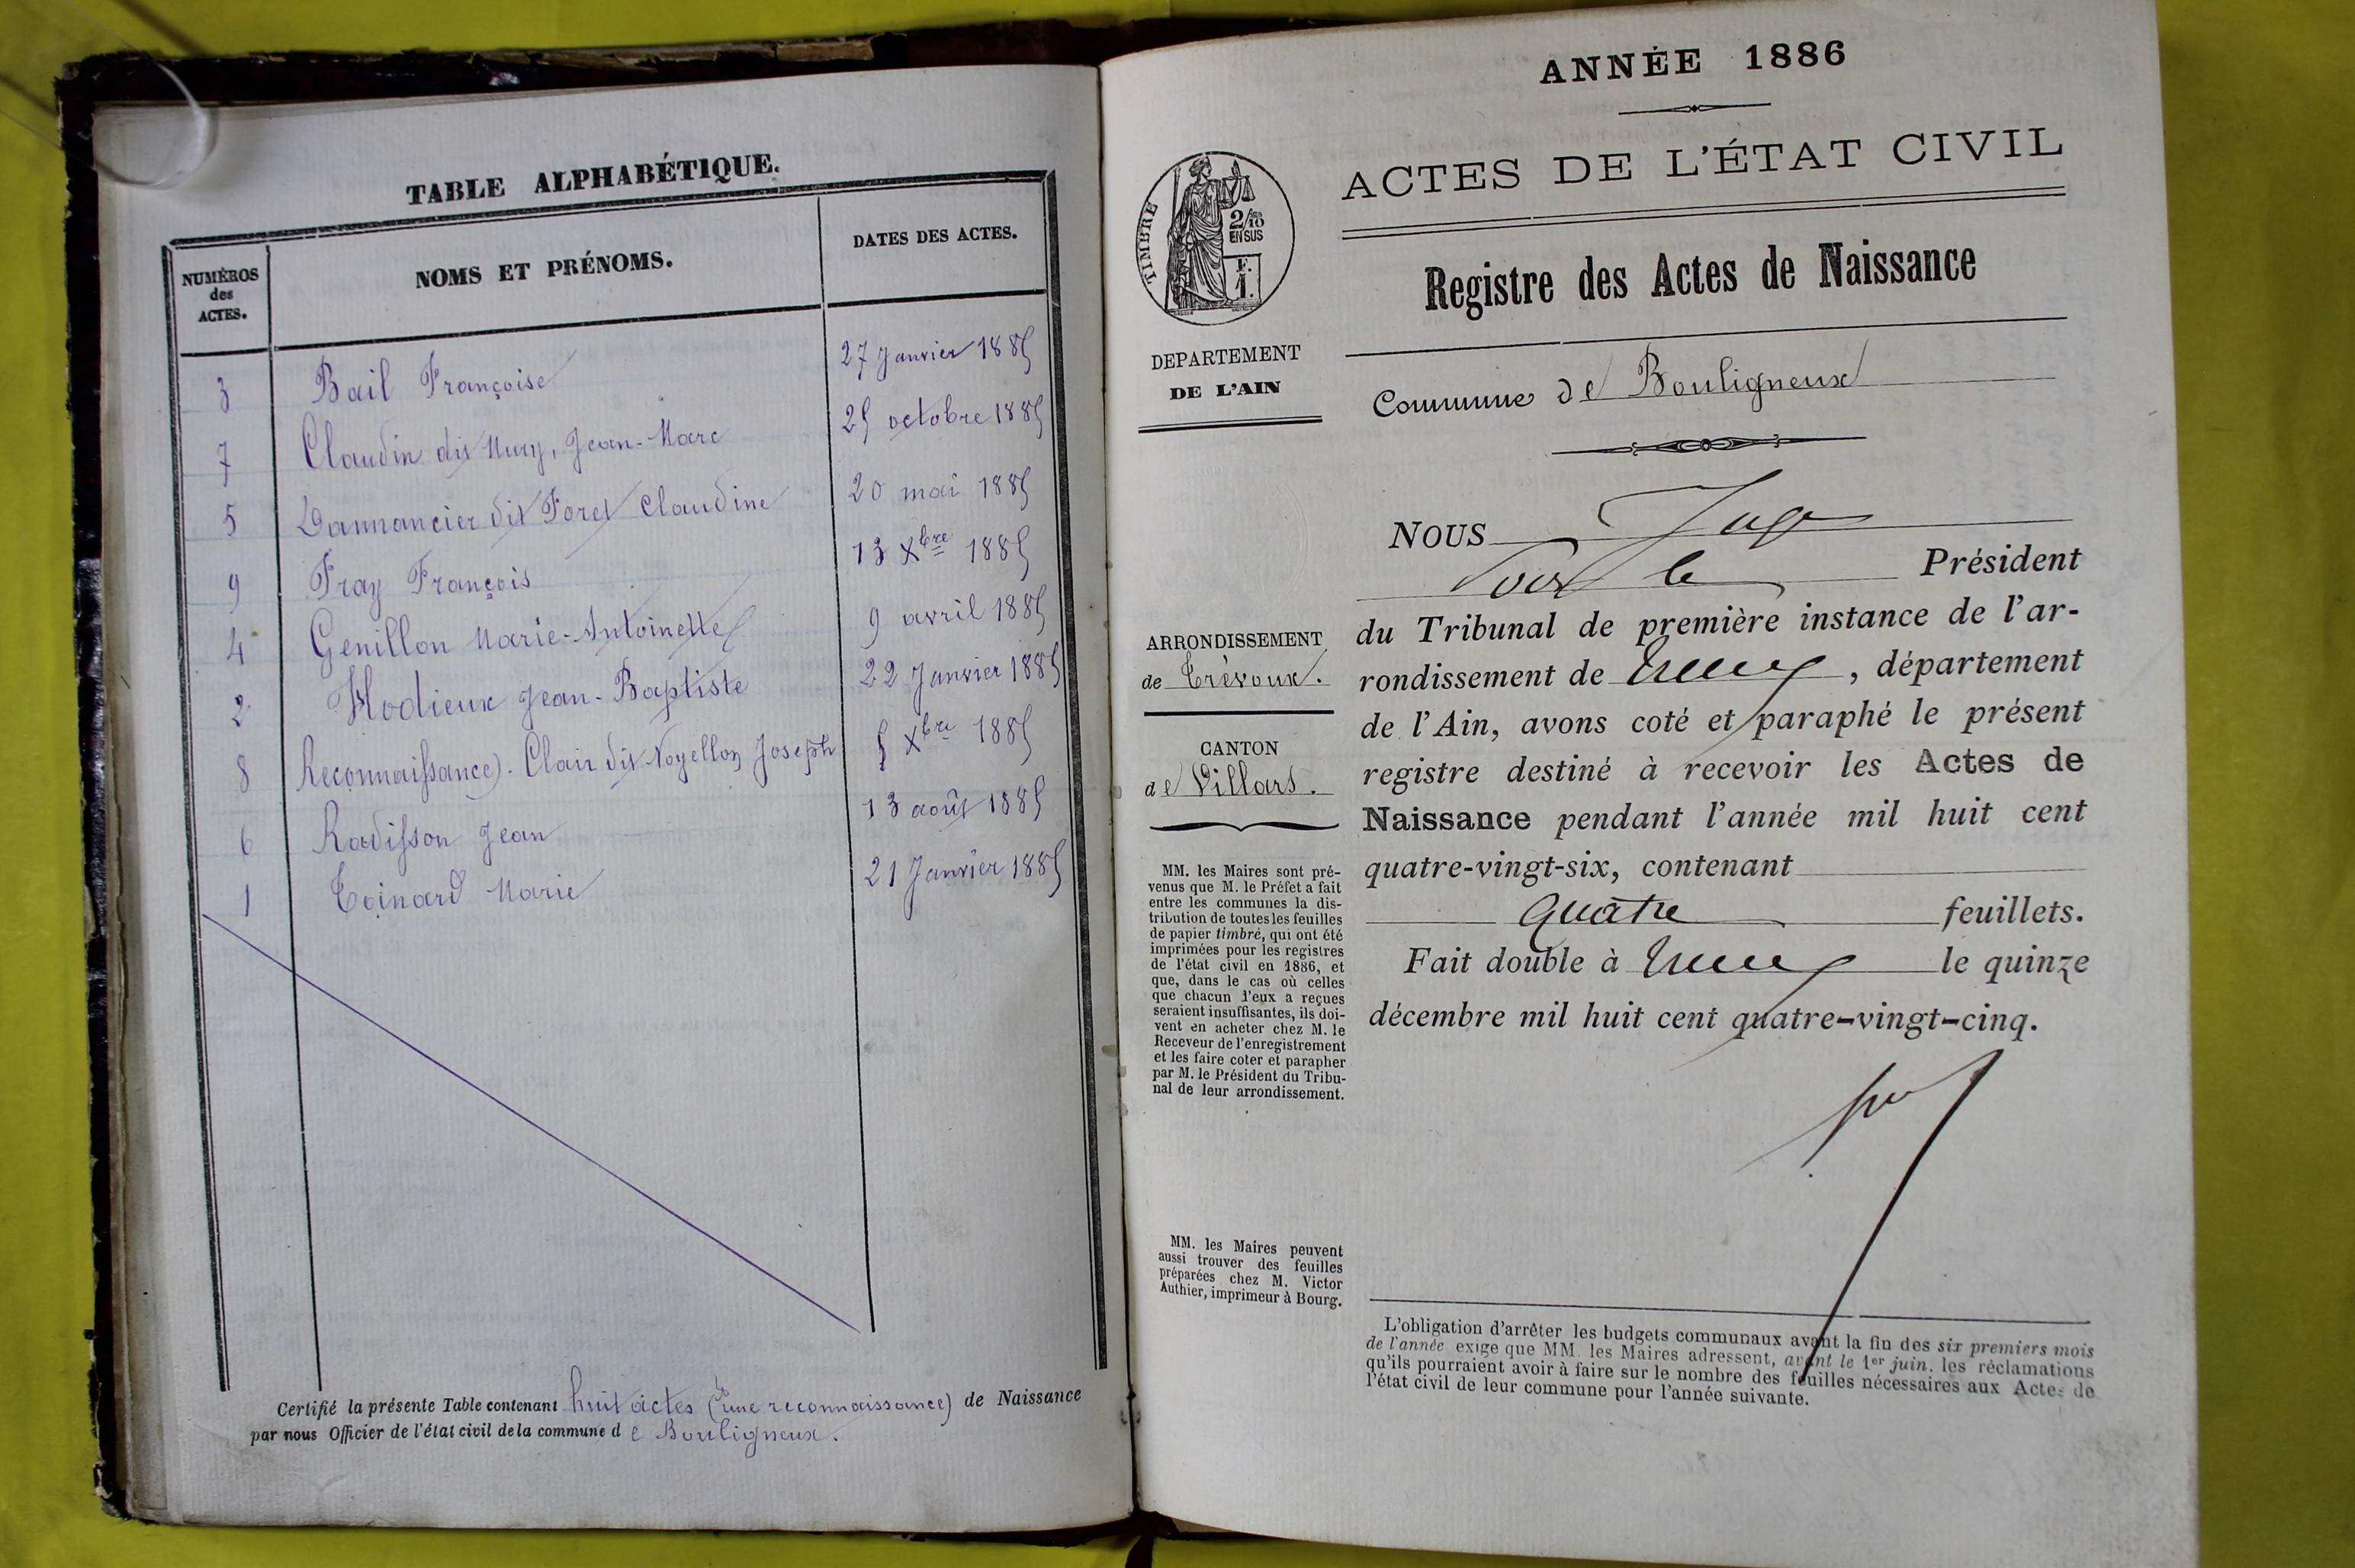 TABLE ALPHABÉTIQUE.
NUMÉROS des ACTES. NOMS ET PRÉNOMS. DATES DES ACTES.
3 Bail Françoise 27 Janvier 1885
7 Claudin dit Mury, Jean-Marc 25 octobre 1885
5 Dannancier dit Foret Claudine 20 mai 1885
9 Fray François 13 Xbre 1885
4 Genillon Marie-Antoinette 9 avril 1885
2 Hodieux Jean-Baptiste 22 Janvier 1885
8 Reconnaissance). Clair dit Noyellon Joseph 5 Xbre 1885
6 Radisson Jean 13 août 1885
1 Toinard Marie 21 Janvier 1885
Certifié la présente Table contenant huit actes (& une reconnaissance) de Naissance
par nous Officier de l'état civil de la commune de Bouligneux.
ANNÉE 1886
ACTES DE L'ÉTAT CIVIL
TIMBRE
2/10
EN SUS
F.
1.
Registre des Actes de Naissance
DEPARTEMENT
DE L'AIN
Commune de Bouligneux
NOUS Juge
Pour le Président
du Tribunal de première instance de l'ar-
rondissement de Trévoux, département
de l'Ain, avons coté et paraphé le présent
registre destiné à recevoir les Actes de
Naissance pendant l'année mil huit cent
quatre-vingt-six, contenant
quatre feuillets.
Fait double à Trévoux le quinze
décembre mil huit cent quatre-vingt-cinq.
ARRONDISSEMENT
de Trévoux.
CANTON
de Villars.
MM. les Maires sont pré-
venus que M. le Préfet a fait
entre les communes la dis-
tribution de toutes les feuilles
de papier timbré, qui ont été
imprimées pour les registres
de l'état civil en 1886, et
que, dans le cas où celles
que chacun d'eux a reçues
seraient insuffisantes, ils doi-
vent en acheter chez M. le
Receveur de l'enregistrement
et les faire coter et parapher
par M. le Président du Tribu-
nal de leur arrondissement.
MM. les Maires peuvent
aussi trouver des feuilles
préparées chez M. Victor
Authier, imprimeur à Bourg.
L'obligation d'arrêter les budgets communaux avant la fin des six premiers mois
de l'année exige que MM. les Maires adressent, avant le 1er juin, les réclamations
qu'ils pourraient avoir à faire sur le nombre des feuilles nécessaires aux Actes de
l'état civil de leur commune pour l'année suivante.